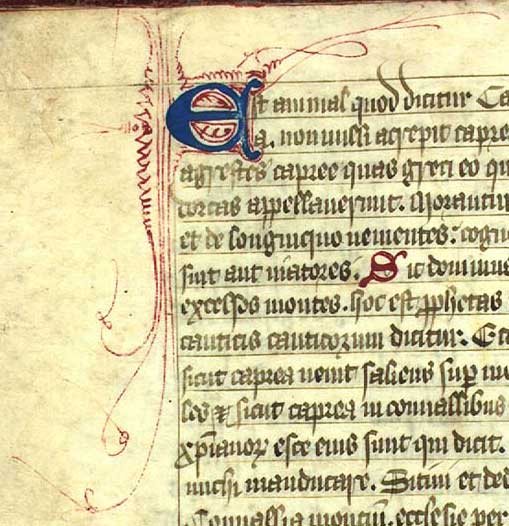 Est animal quod dicitur Ca
a. nonnulli agrepit capre
agrestes capree quas greci eo qu
dorcas appellauerunt. Morantur
et de longinquo uenientes: cogn
sint aut uiatores. Sic dominus
excelsos montes. hoc est ꝓphetas
canticis canticorum dicitur: Ecc
sicut caprea uenit saliens suꝑ mo
les ⁊ sicut caprea in conuallibus
xp̄ianoꝝ esce eius sunt qui dicit.
michi manducare. Sitiui et ded
Conuallia montiū. ecclesie per